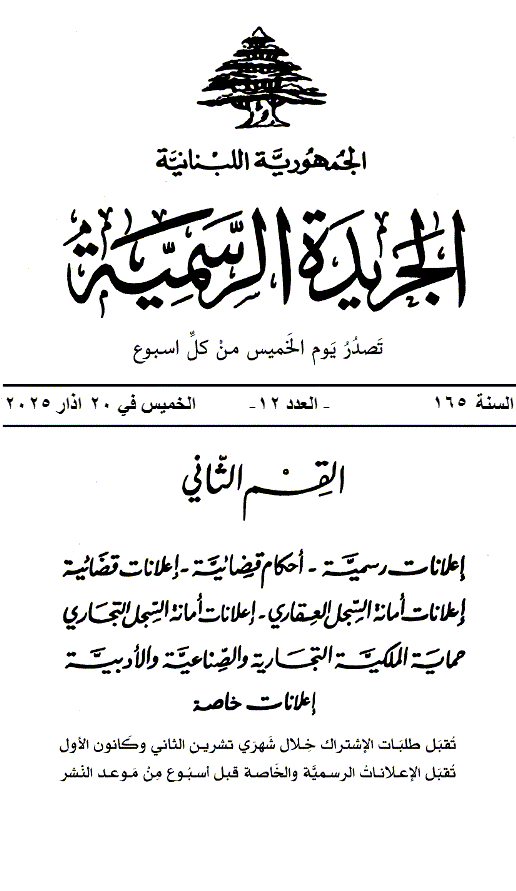 الجمهورية اللبنانية
الجريدة الرسمية
تَصدُرُ يَوم الخَميس منْ كلِّ اسبوع
السنة ١٦٥ - العدد ١٢- الخميس في ٢٠ اذار ٢٠٢٥
القِسْم الثّاني
إعلانات رسميَّة - أحكام قضائيَّة - إعلانات قضائية
إعلانات أمانة السِّجل العقاري - إعلانات أمانة السِّجل التجاري
حماية الملكيَّة التجارية والصِّناعيَّة والأدبيَّة
إعلانات خاصة
تُقبَل طلبَات الإشتراك خِلال شَهرَي تشرين الثاني وكَانون الأول
تُقبَل الإعلاناتُ الرسميَّة والخَاصة قبل أسبُوع مِنْ مَوعد النّشر